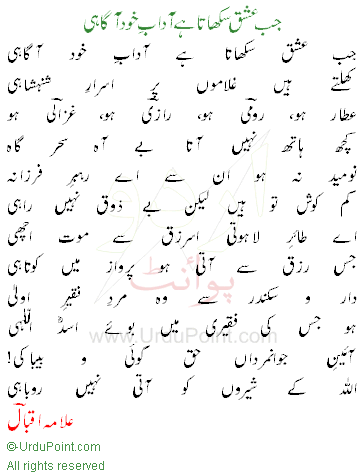 جب عشق سکھاتا ہے آدابِ خود آگاہی
جب عشق سکھاتا ہے آدابِ خود آگاہی
کھلتے ہیں غلاموں پر اسرارِ شہنشاہی
عطار ہو، رومیؔ ہو، رازیؔ ہو، غزالیؔ ہو
کچھ ہاتھ نہیں آتا بے آہِ سحر گاہی
نومید نہ ہو ان سے اے رہبرِ فرزانہ
کم کوش تو ہیں لیکن بے ذوق نہیں راہی
اے طائرِ لاہوتی اسرزق سے موت اچھی
جس رزق سے آتی ہو پرواز میں کوتاہی
دار و سکندر سے وہ مردِ فقیر اولیٰ
ہو جس کی فقیری میں بوئے اسدؓ اللٰہی
آئینِ جوانمرداں حق گوئی و بیباکی!
اللہ کے شیروں کو آتی نہیں روباہی
علامہ اقبالؔ
©-UrduPoint.com
All rights reserved
پوائنٹ
www.UrduPoint.com